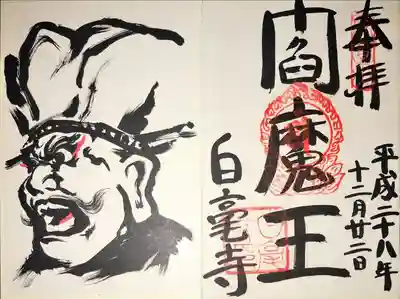 奉拝
閻魔王
白毫寺
平成二十八年
十二月廿二日